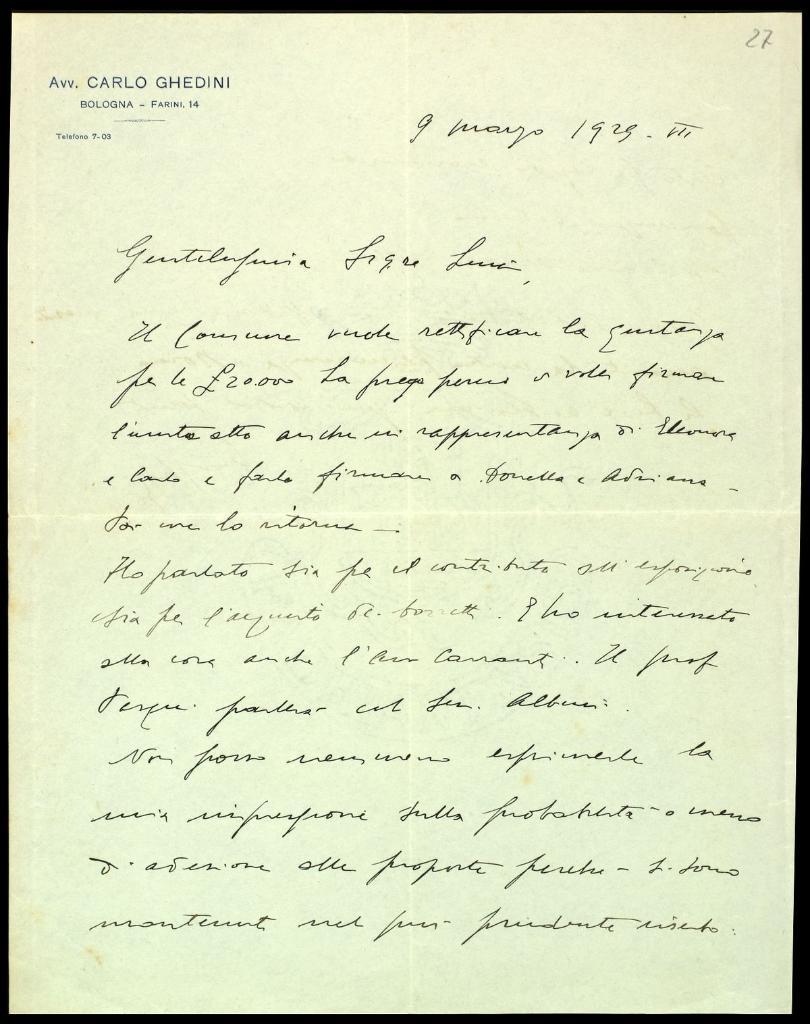 27
Avv. CARLO GHEDINI
BOLOGNA – FARINI, 14
Telefono 7-03
9 marzo 1929 - VII
Gentilissima Sig.ra
Il Comune vuole rettificare la quietanza
per le £ 20.000 La prego perciò di voler firmare
l'unito atto anche in rappresentanza di Eleonora
e Carlo e farlo firmare a Donella e Adriana –
Poi me lo ritorna –
Ho parlato sia per il contributo all'esposizione
sia per l'acquisto dei bozzetti. E ho interessato
alla cosa anche l'avv . Il prof
parlerà col Sen. Albini.
Non posso nemmeno esprimerle la
mia impressione sulla probabilità o meno
di adesione alle proposte perché si sono
mantenuti nel più prudente riserbo.